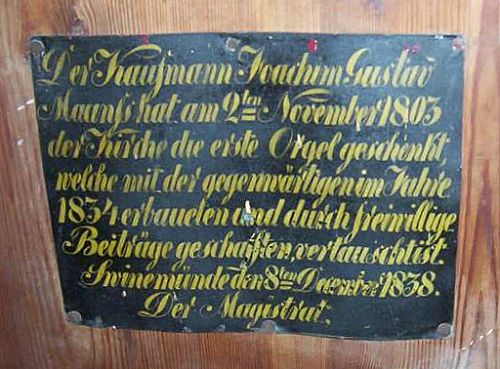 Der Kaufmann Joachim Gustav
Maanss hat am 2ten November 1803
der Kirche die erste Orgel geschenkt,
welche mit der gegenwärtigen im Jahre
1834 erbaueten und durch freiwillige
Beiträge geschafften, vertauscht ist.
Swinemünde den 8ten December 1838.
Der Magistrat;